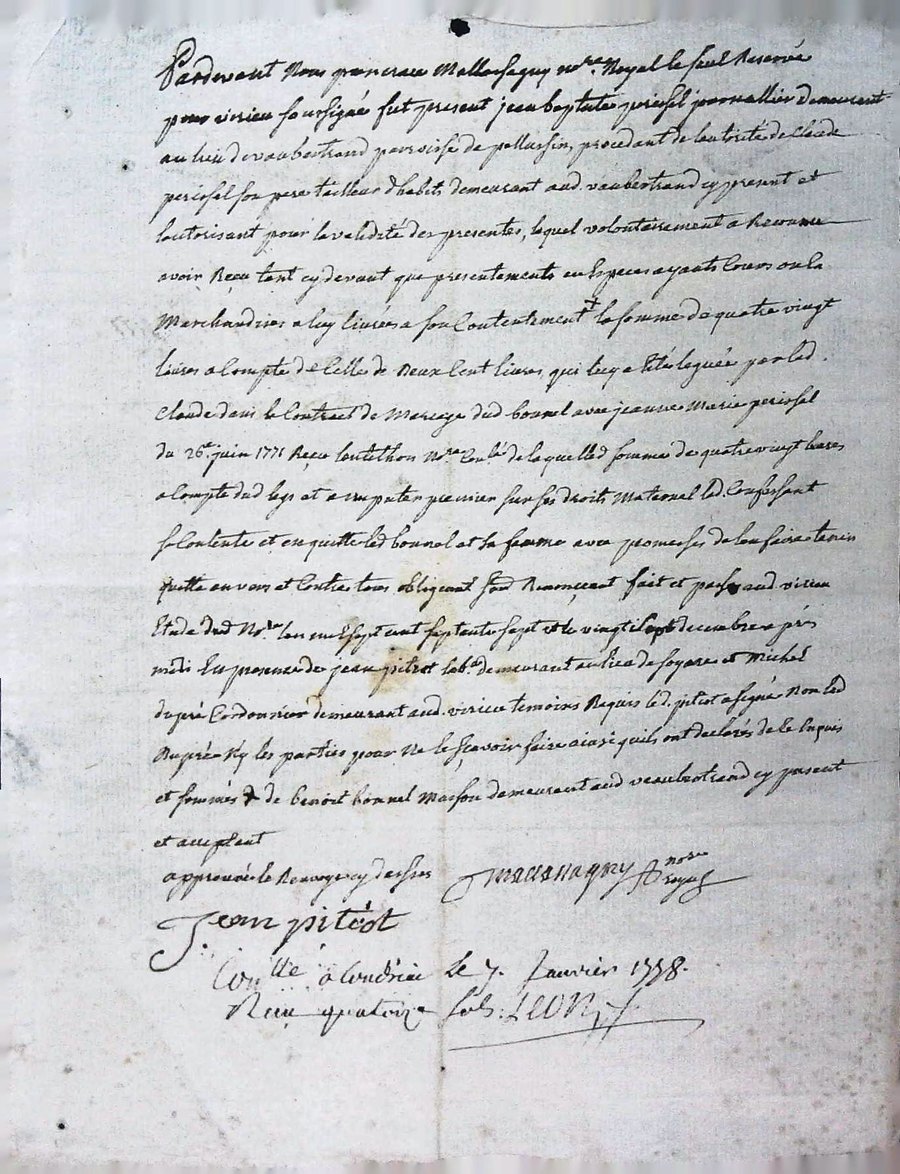 Pardevant Nous pancrace Mallassagny no.re Royal le seul Reservé
pour virieu soursigné fut present jean baptiste periosel journallier demeurant
au lieu de vaubertrand parroisse de pellussin, procedant de lautorité de Claude
periosel son pere tailleur d'habits demeurant aud. vaubertrand cy present et
lautorisant pour la validité des presentes, lequel volontairement a Reconnu
avoir Reçu tant cy devant que presentements en Especes ayants Cours ou la
Marchandises a luy livrées a son Contentement la somme de quatre vingt
livres a Compte de Celle de deux Cent livres, qui luy a Eté leguée par led.
Claude dans le Contract de Mariage dud bonnel avec jeanne Marie periosel
du 26e. juin 1771 Reçu No.re de laquelle d somme de quatre vingt livres
a Compte dud legs et a imputer premier sur ses droits Maternel led. Confessant
se Contente et en quitte led bonnel et sa femme avec promesses de leu faire tenir
quitte envers et Contre tous obligeant soud Renonçant fait et passé aud virieu
Etude dud No.re lan mil sept cent septante sept et le vingt decembre a près
midi En presence de jean pitiot lab.r demeurant au lieu de soyere et Michel
dupré Cordonnier demeurant aud. virieu temoins Requis led. pitiot a signé Non led
Dupré Ny les parties pour Ne le sçavoir faire ainsi quils ont declarés de Ce Enquis
et sommés de benoit bonnel Masson demeurant aud vaubertrand cy present
et acceptant
approuvé le Renvoye cy dessus mallassagny nore royal
Jean pitiot
Con.llé a Condrieu Le 7. Janvier 1778.
Reçu quatorze sols. LEORY